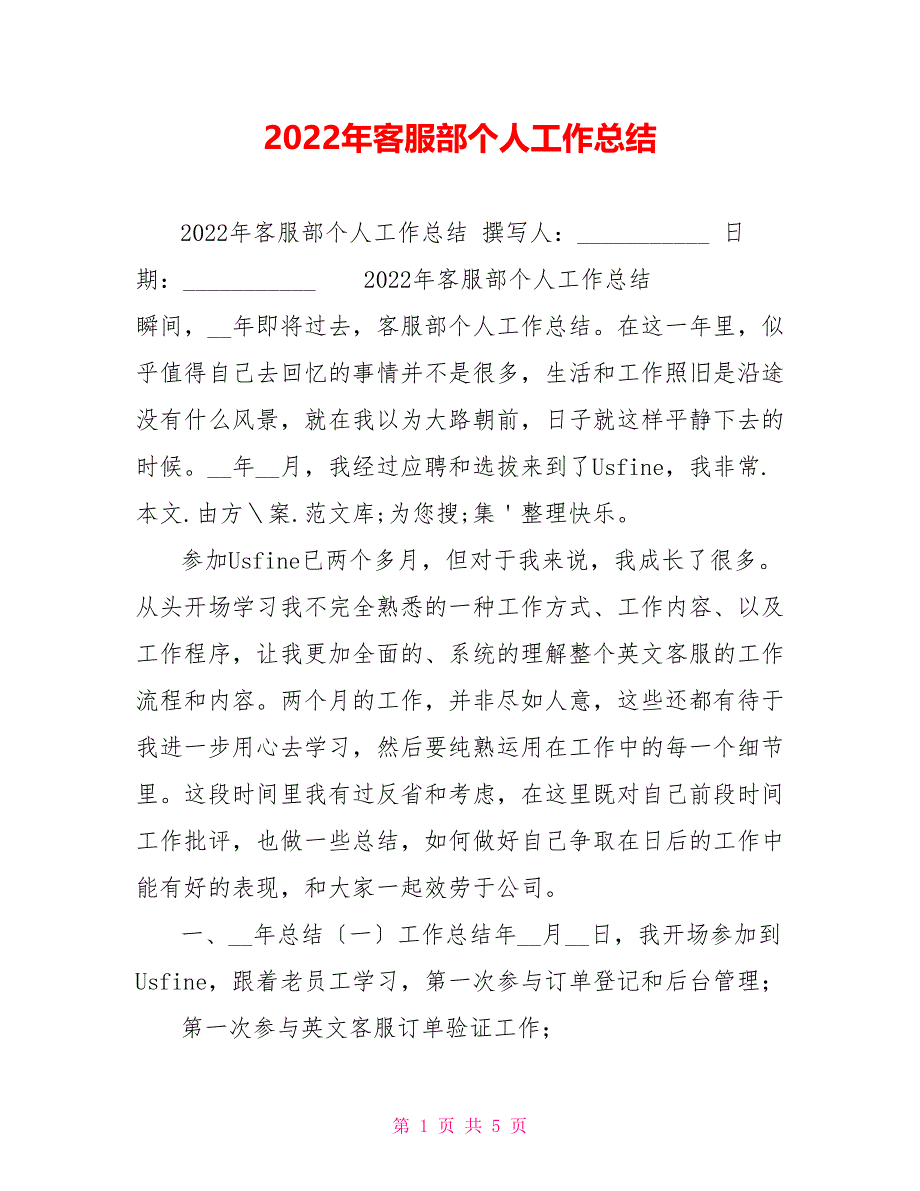 2022年客服部个人工作总结
2022年客服部个人工作总结 撰写人：___________ 日
期：___________ 2022年客服部个人工作总结
瞬间，__年即将过去，客服部个人工作总结。在这一年里，似
乎值得自己去回忆的事情并不是很多，生活和工作照旧是沿途
没有什么风景，就在我以为大路朝前，日子就这样平静下去的
时候。__年__月，我经过应聘和选拔来到了Usfine，我非常.
本文.由方＼案.范文库;为您搜;集＇整理快乐。
参加Usfine已两个多月，但对于我来说，我成长了很多。
从头开场学习我不完全熟悉的一种工作方式、工作内容、以及
工作程序，让我更加全面的、系统的理解整个英文客服的工作
流程和内容。两个月的工作，并非尽如人意，这些还都有待于
我进一步用心去学习，然后要纯熟运用在工作中的每一个细节
里。这段时间里我有过反省和考虑，在这里既对自己前段时间
工作批评，也做一些总结，如何做好自己争取在日后的工作中
能有好的表现，和大家一起效劳于公司。
一、__年总结〔一〕工作总结年__月__日，我开场参加到
Usfine，跟着老员工学习，第一次参与订单登记和后台管理；
第一次参与英文客服订单验证工作；
第 1 页 共 5 页